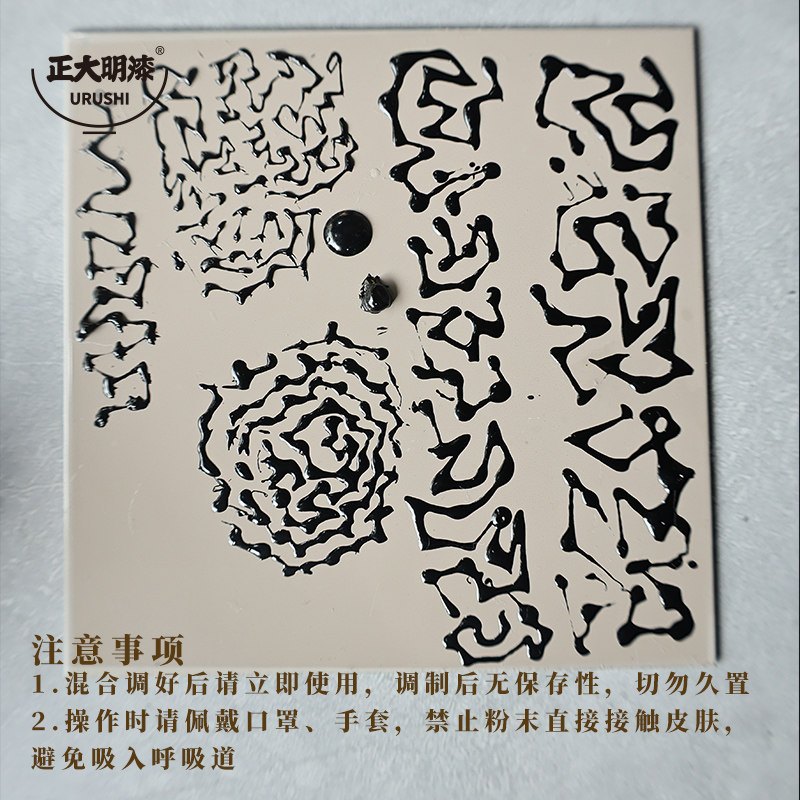 正大明漆®
URUSHI
注意事项
1.混合调好后请立即使用，调制后无保存性，切勿久置
2.操作时请佩戴口罩、手套，禁止粉末直接接触皮肤，
避免吸入呼吸道